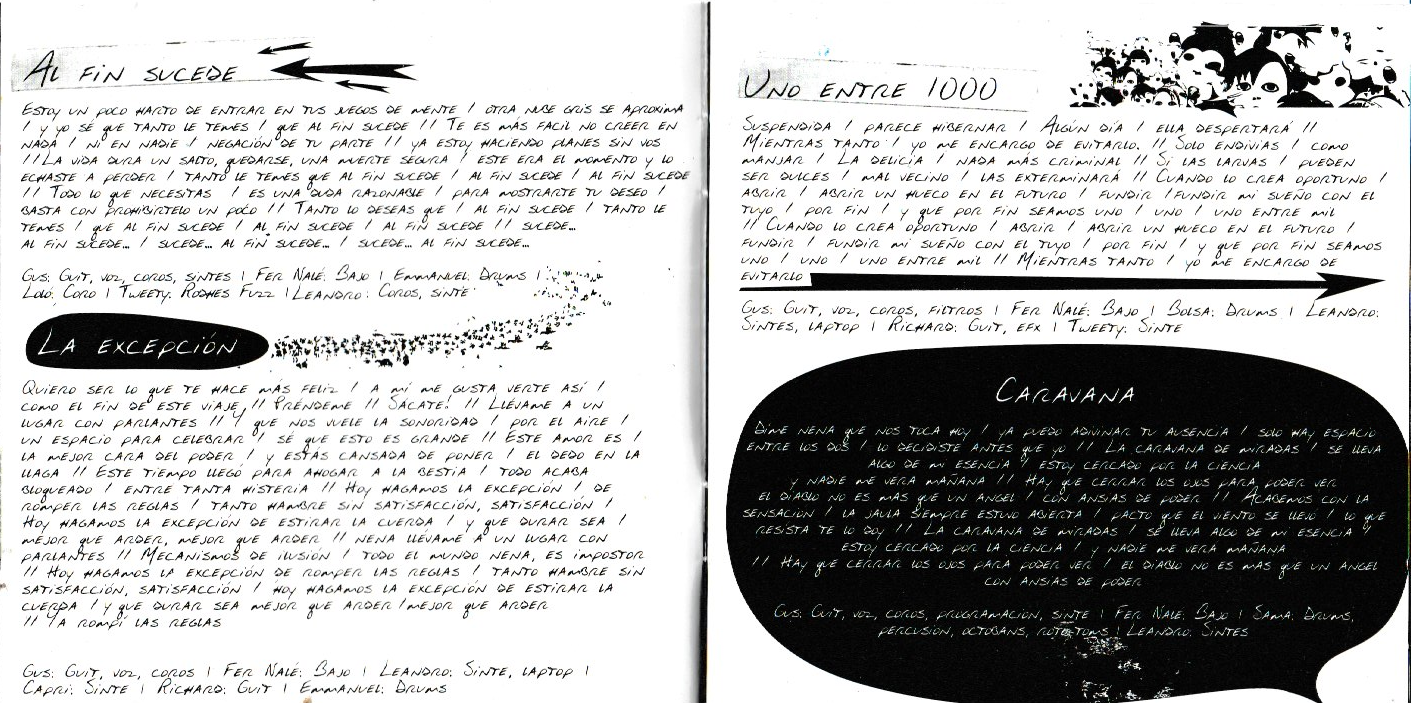 Al fin sucede
Estoy un poco harto de entrar en tus juegos de mente / otra nube gris se aproxima
/ y yo sé que tanto le temes / que al fin sucede // Te es más facil no creer en
nada / ni en nadie / negación de tu parte // ya estoy haciendo planes sin vos
// La vida dura un salto, quedarse, una muerte segura / este era el momento y lo
echaste a perder / tanto le temes que al fin sucede / al fin sucede / al fin sucede
// Todo lo que necesitas / es una duda razonable / para mostrarte tu deseo /
basta con prohibirtelo un poco // Tanto lo deseas que / al fin sucede / tanto le
temes / que al fin sucede / al fin sucede / al fin sucede // sucede...
al fin sucede... / sucede... al fin sucede... / sucede... al fin sucede...
Gus: Guit, voz, coros, sintes | Fer Nalé: Bajo | Emmanuel: Drums |
Lolo: Coro | Tweety: Rodhes Fuzz | Leandro: Coros, sinte
La excepción
Quiero ser lo que te hace más feliz / a mí me gusta verte así /
como el fin de este viaje // Préndeme // Sácate! // Llévame a un
lugar con parlantes // Y que nos vuele la sonoridad / por el aire /
un espacio para celebrar / sé que esto es grande // Este amor es /
la mejor cara del poder / y estás cansada de poner / el dedo en la
llaga // Este tiempo llegó para ahogar a la bestia / todo acaba
bloqueado / entre tanta histeria // Hoy hagamos la excepción / de
romper las reglas / tanto hambre sin satisfacción, satisfacción /
Hoy hagamos la excepción de estirar la cuerda / y que durar sea /
mejor que arder, mejor que arder // nena llévame a un lugar con
parlantes // Mecanismos de ilusión / todo el mundo nena, es impostor
// Hoy hagamos la excepción de romper las reglas / tanto hambre sin
satisfacción, satisfacción / hoy hagamos la excepción de estirar la
cuerda / y que durar sea mejor que arder / mejor que arder
// Ya rompí las reglas
Gus: Guit, voz, coros | Fer Nalé: Bajo | Leandro: Sinte, laptop |
Capri: Sinte | Richard: Guit | Emmanuel: Drums
Uno entre 1000
Suspendida / parece hibernar / Algún día / ella despertará //
Mientras tanto / yo me encargo de evitarlo. // Solo endivias / como
manjar / La delicia / nada más criminal // Si las larvas / pueden
ser dulces / mal vecino / las exterminará // Cuando lo crea oportuno /
abrir / abrir un hueco en el futuro / fundir / fundir mi sueño con el
tuyo / por fin / y que por fin seamos uno / uno / uno entre mil
// Cuando lo crea oportuno / abrir / abrir un hueco en el futuro /
fundir / fundir mi sueño con el tuyo / por fin / y que por fin seamos
uno / uno / uno entre mil // Mientras tanto / yo me encargo de
evitarlo
Gus: Guit, voz, coros, filtros | Fer Nalé: Bajo | Bolsa: Drums | Leandro:
Sintes, laptop | Richard: Guit, efx | Tweety: Sinte
Caravana
Dime nena que nos toca hoy / ya puedo adivinar tu ausencia / solo hay espacio
entre los dos / lo decidiste antes que yo // La caravana de miradas / se lleva
algo de mi esencia // estoy cercado por la ciencia
y nadie me vera mañana // Hay que cerrar los ojos para poder ver
el diablo no es mas que un angel / con ansias de poder // Acabemos con la
sensación / la jaula siempre estuvo abierta / pacto que el viento se llevó / lo que
resista te lo doy // La caravana de miradas se lleva algo de mi esencia //
estoy cercado por la ciencia / y nadie me vera mañana
// Hay que cerrar los ojos para poder ver / el diablo no es mas que un angel
con ansias de poder
Gus: Guit, voz, coros, programación, sinte | Fer Nalé: Bajo | Sama: Drums,
percusión, octobans, rototoms | Leandro: Sintes